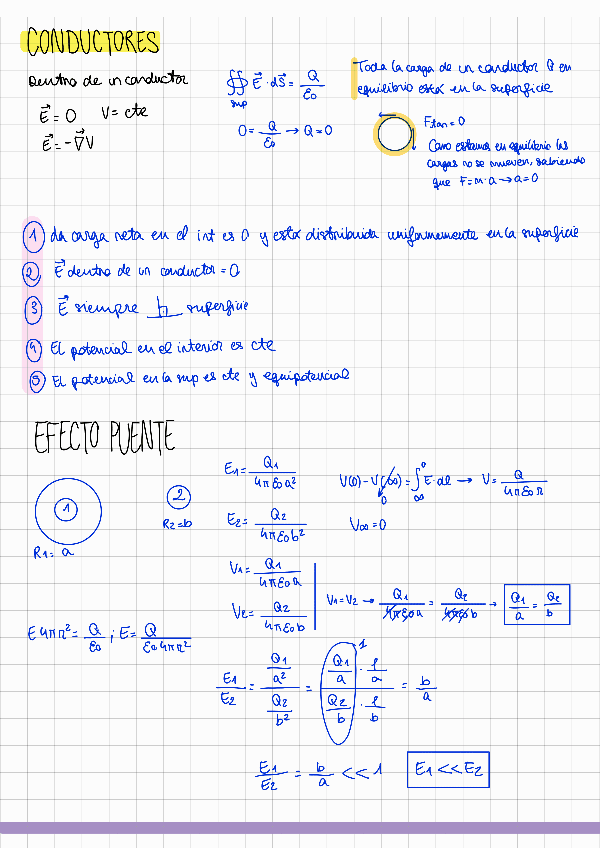 CONDUCTORES
Dentro de un conductor
E⃗ = 0 V = cte
E⃗ = -∇⃗V
∯sup E⃗ · dS⃗ = Q/ε0
0 = Q/ε0 → Q = 0
Toda la carga de un conductor Q en
equilibrio está en la superficie
Ftan = 0
Como estamos en equilibrio las
cargas no se mueven, sabiendo
que F = m · a → a = 0
1 La carga neta en el int es 0 y está distribuida uniformemente en la superficie
2 E⃗ dentro de un conductor = 0
3 E⃗ siempre ⊥ superficie
4 El potencial en el interior es cte
5 El potencial en la sup es cte y equipotencial
EFECTO PUENTE
1
R1 = a
2
R2 = b
E1 = Q1/4πε0a²
E2 = Q2/4πε0b²
V(0) - V(∞) = ∫∞⁰ E⃗ · dl → V = Q/4πε0r
0
V∞ = 0
V1 = Q1/4πε0a
V2 = Q2/4πε0b
V1 = V2 → Q1/4πε0a = Q2/4πε0b → Q1/a = Q2/b
E 4πr² = Q/ε0 ; E = Q/ε0 4πr²
E1/E2 = (Q1/a²)/(Q2/b²) = (Q1/a · 1/a)/(Q2/b · 1/b) = b/a
1
E1/E2 = b/a << 1
E1 << E2